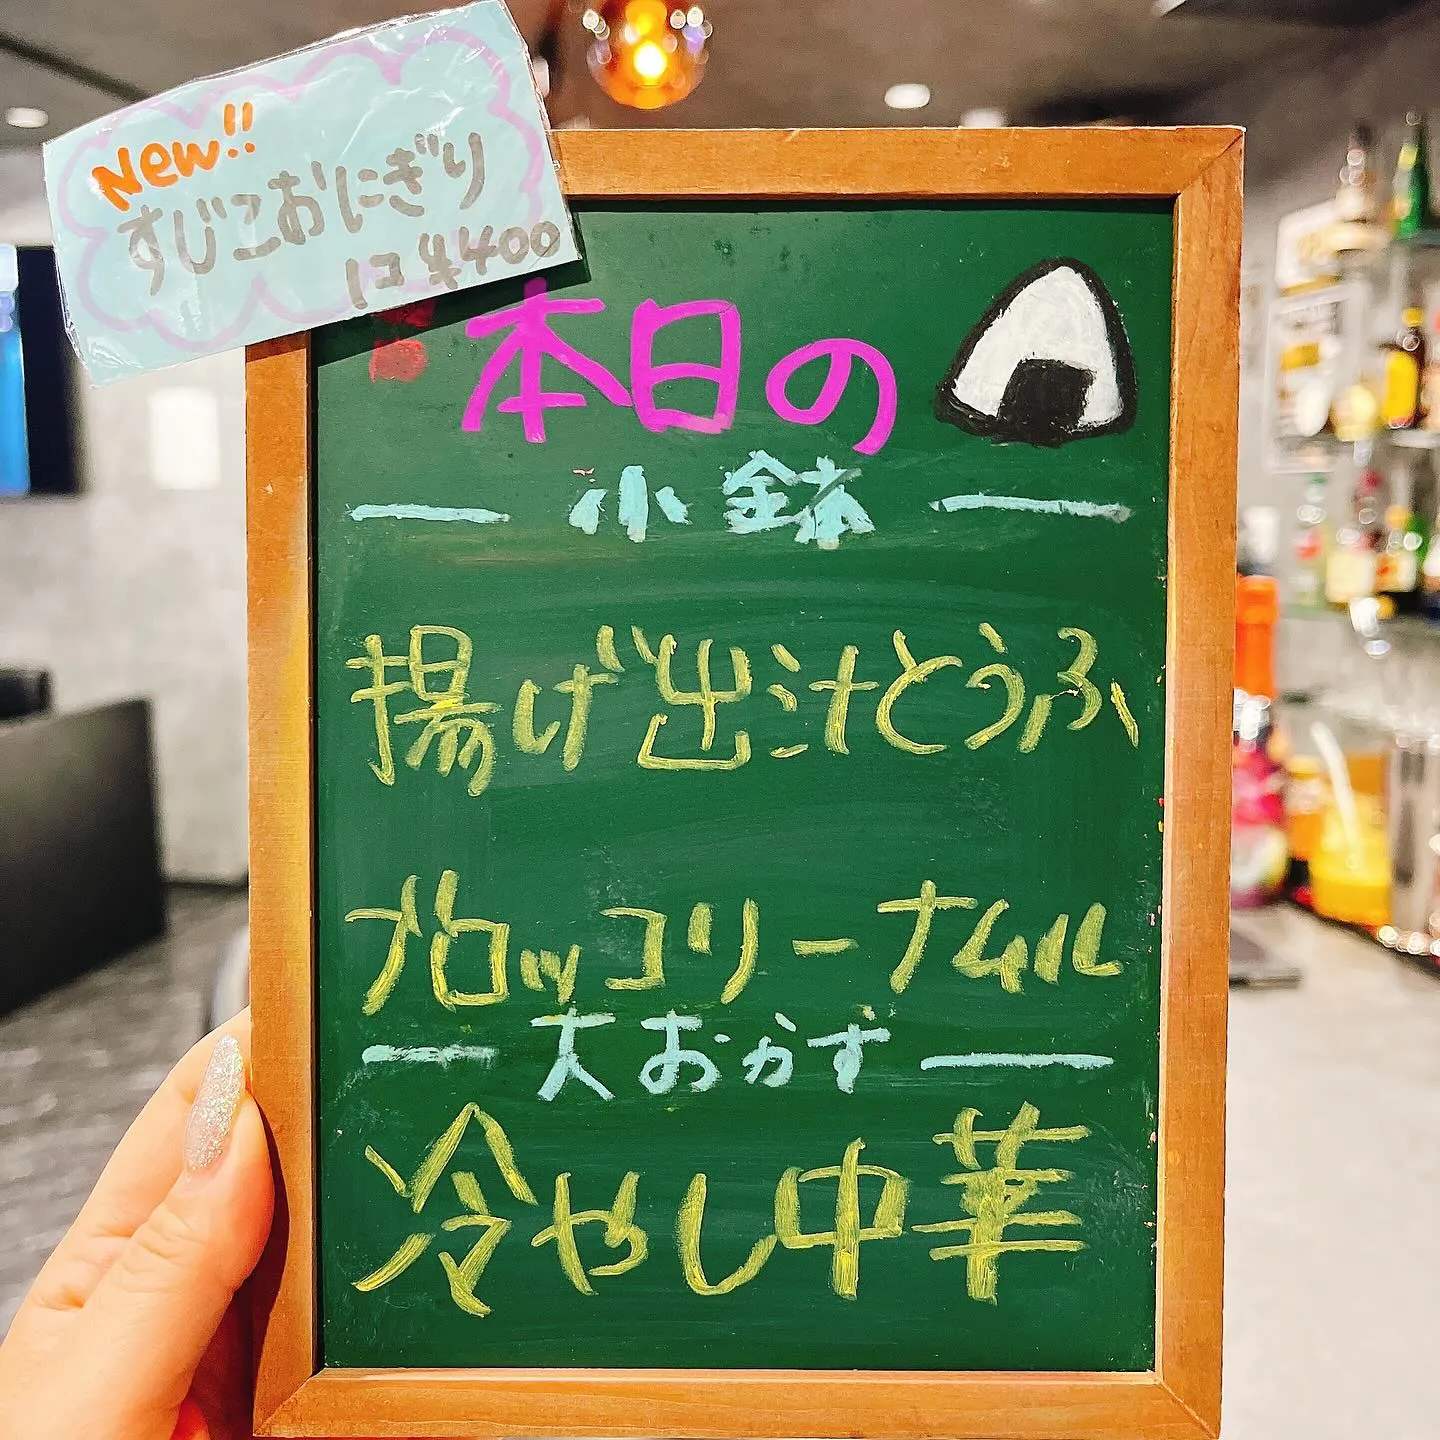 New!!
すじこおにぎり
1コ ¥400
本日の
小鉢
揚げ出汁とうふ
ブロッコリーナムル
大おかず
冷やし中華